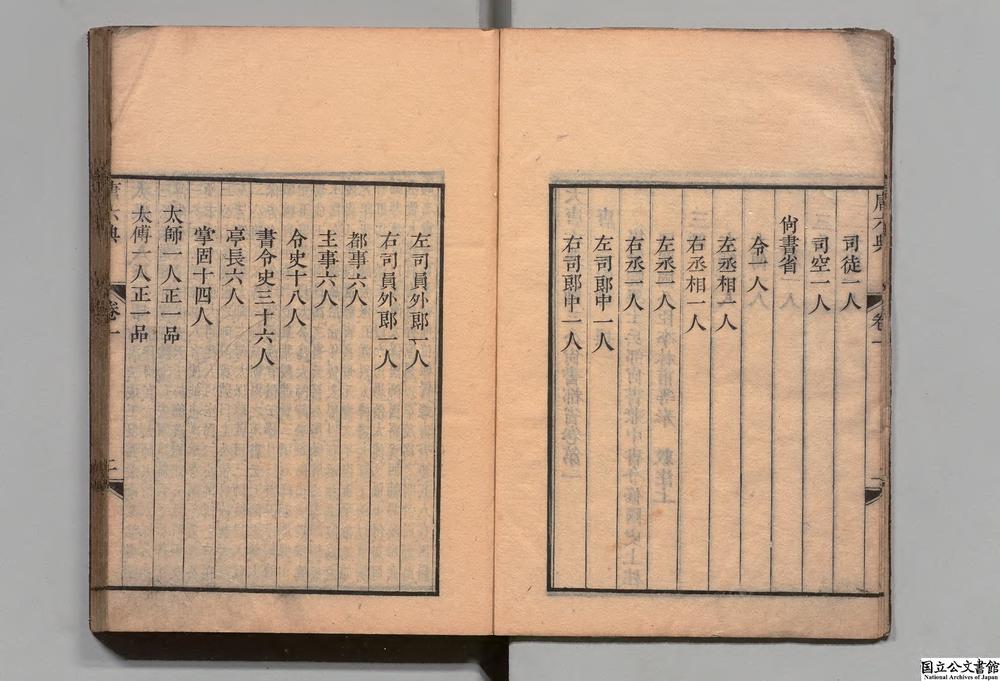 司徒一人
司空一人
尙書省
令一人
左丞相一人
右丞相一人
左丞一人
右丞一人
左司郎中一人
右司郎中一人
左司員外郎一人
右司員外郎一人
都事六人
主事六人
令史十八人
書令史三十六人
亭長六人
掌固十四人
太師一人正一品
太傅一人正一品
唐六典
卷一
国立公文書館
National Archives of Japan